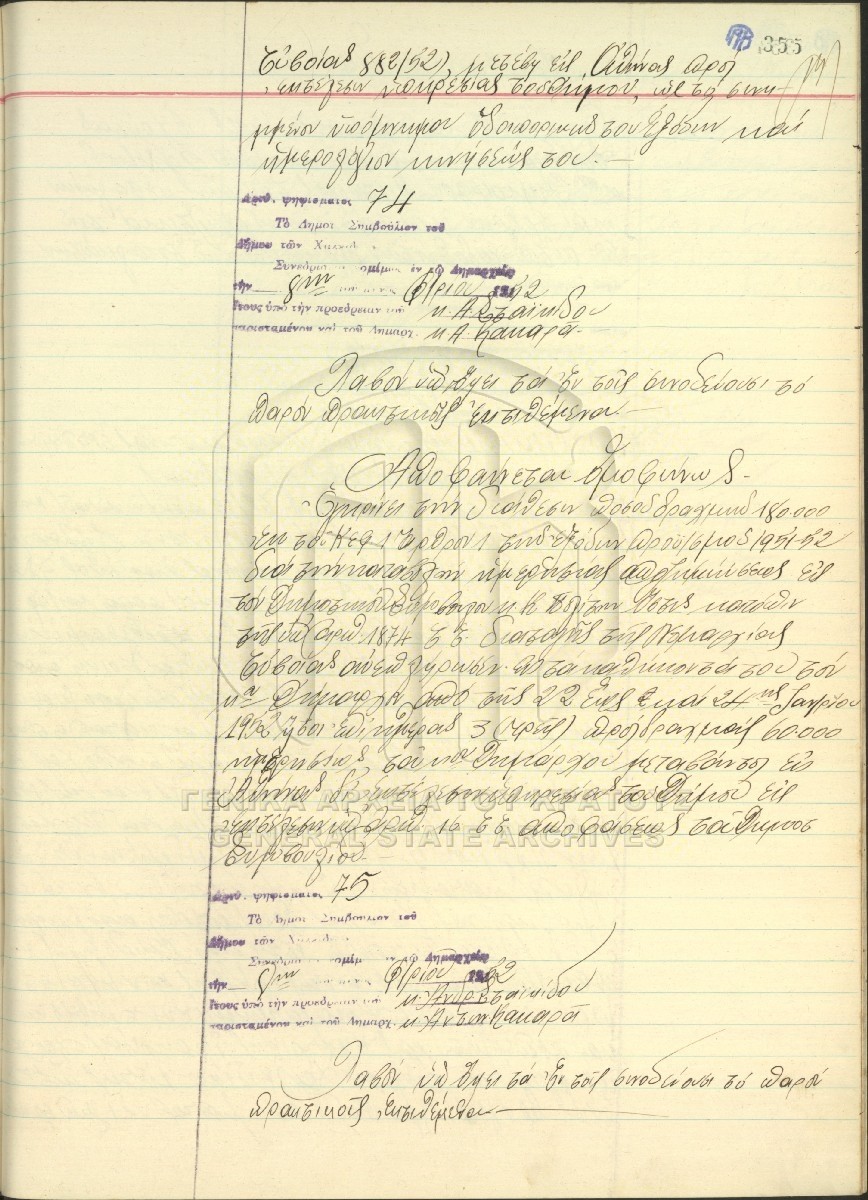 355
Εὐβοίας 882/52), μετέβη εἰς Ἀθήνας πρὸς
ἐκτέλεσιν ὑπηρεσίας τοῦ Δήμου, ὡς τὸ συνη-
μμένον ὑπόμνημα ὁδοιπορικῶς του ἐξόδων καὶ
ἡμερολόγιον κινήσεώς του.—
Ἀριθ. ψηφίσματος 74
Τὸ Δημοτ. Συμβούλιον τοῦ
Δήμου τῶν
Συνεδρι νομίμως ἐν τῷ Δημαρχείῳ
τὴν 8ην Φ/ρίου 1952
ἔτους ὑπὸ τὴν προεδρείαν τοῦ κ. Α.
παρισταμένου καὶ τοῦ Δημάρχ. κ. Α. Κακαρᾶ
Λαβὸν ὑπ' ὄψει τὰ ἐν τοῖς συνοδεύουσι τὸ
παρὸν πρακτικοῖς ἐκτιθέμενα—
Ἀποφαίνεται ὁμοφώνως—
Ἐγκρίνει τὴν διάθεσιν ποσοῦ δραχμῶν 180.000
ἐκ τοῦ Κεφ 1 Ἄρθρου 1 τῶν ἐξόδων προϋ/σμοῦ 1951-52
διὰ τὴν καταβολὴν ἡμερησίας ἀποζημιώσεως εἰς
τὸν Δημοτικὸν Σύμβουλον κ. Κ. ὅστις κατόπιν
τῆς ὑπ' ἀριθ. 1874 ἐ.ἔ. διαταγῆς τῆς Νομαρχίας
Εὐβοίας ἀνεπλήρωσεν εἰς τὰ καθήκοντά του τὸν
κον Δήμαρχον ἀπὸ τῆς 22 ἕως καὶ 24ης Ἰαν/ρίου
1952 ἤτοι ἐπὶ ἡμέρας 3 (τρεῖς) πρὸς δραχμὰς 60.000
ἡμερησίως, τοῦ κου Δημάρχου μεταβάντος εἰς
Ἀθήνας δι' ὑπηρεσίας τοῦ Δήμου εἰς
ἐκτέλεσιν ὑπ' ἀριθ. 16 ἐ.ἔ. ἀποφάσεως τοῦ Δημοτ
Συμβουλίου—
Ἀριθ. ψηφίσματος 75
Τὸ Δημοτ Συμβούλιον τοῦ
Δήμου τῶν
Συνεδρι νομίμ ἐν τῷ Δημαρχείῳ
τὴν 8ην Φ/ρίου 1952
ἔτους ὑπὸ τὴν προεδρείαν τοῦ κ. Ἀνδρ.
παρισταμένου καὶ τοῦ Δημάρχ. κ. Ἀντων. Κακαρᾶ
Λαβὸν ὑπ' ὄψει τὰ ἐν τοῖς συνοδεύουσι τὸ παρὸν
πρακτικοῖς ἐκτιθέμενα—
ΓΕΝΙΚΑ ΑΡΧΕΙΑ ΤΟΥ ΚΡΑΤΟΥΣ
GENERAL STATE ARCHIVES